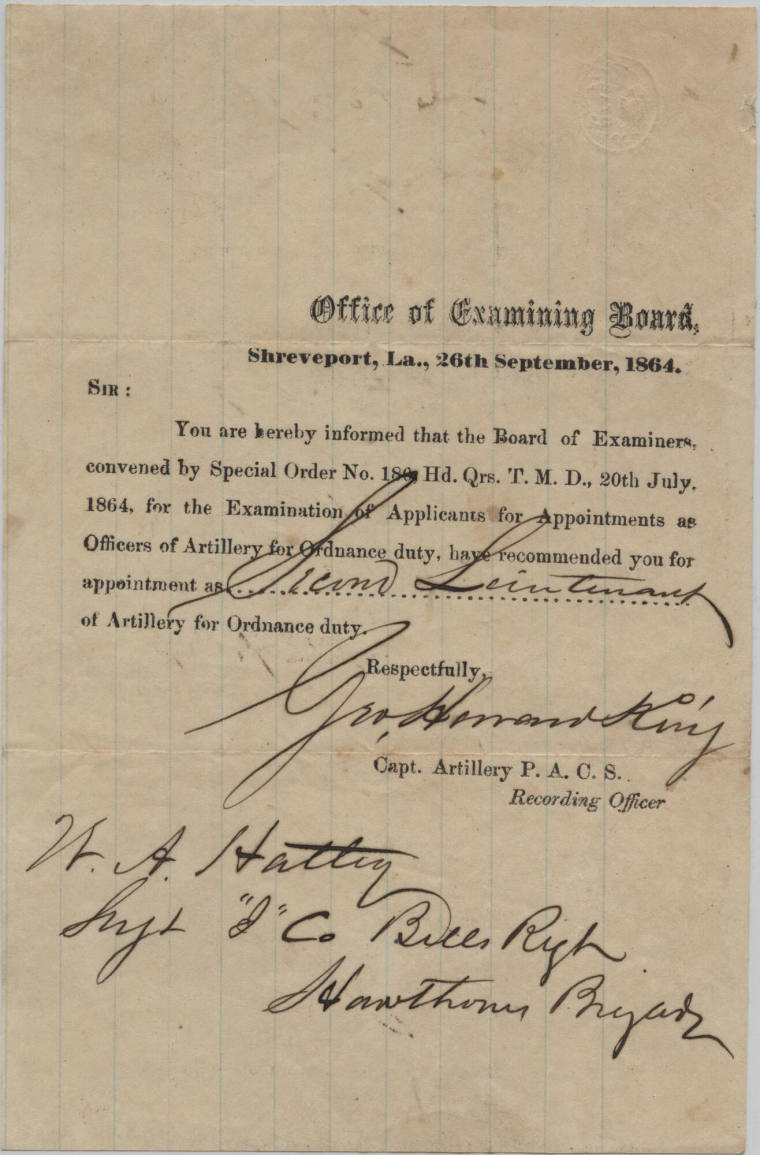 Office of Examining Board,
Shreveport, La., 26th September, 1864.
SIR :
You are hereby informed that the Board of Examiners,
convened by Special Order No. Hd. Qrs. T. M. D., 20th July,
1864, for the Examination of Applicants for Appointments as
Officers of Artillery for Ordnance duty, have recommended you for
appointment as Second Lieutenant
of Artillery for Ordnance duty.
Respectfully,
Geo, Howard King
Capt. Artillery P. A. C. S.
Recording Officer
W. A. Hattey
Sergt "I" Co Bells Regt
Hawthorns Brigade